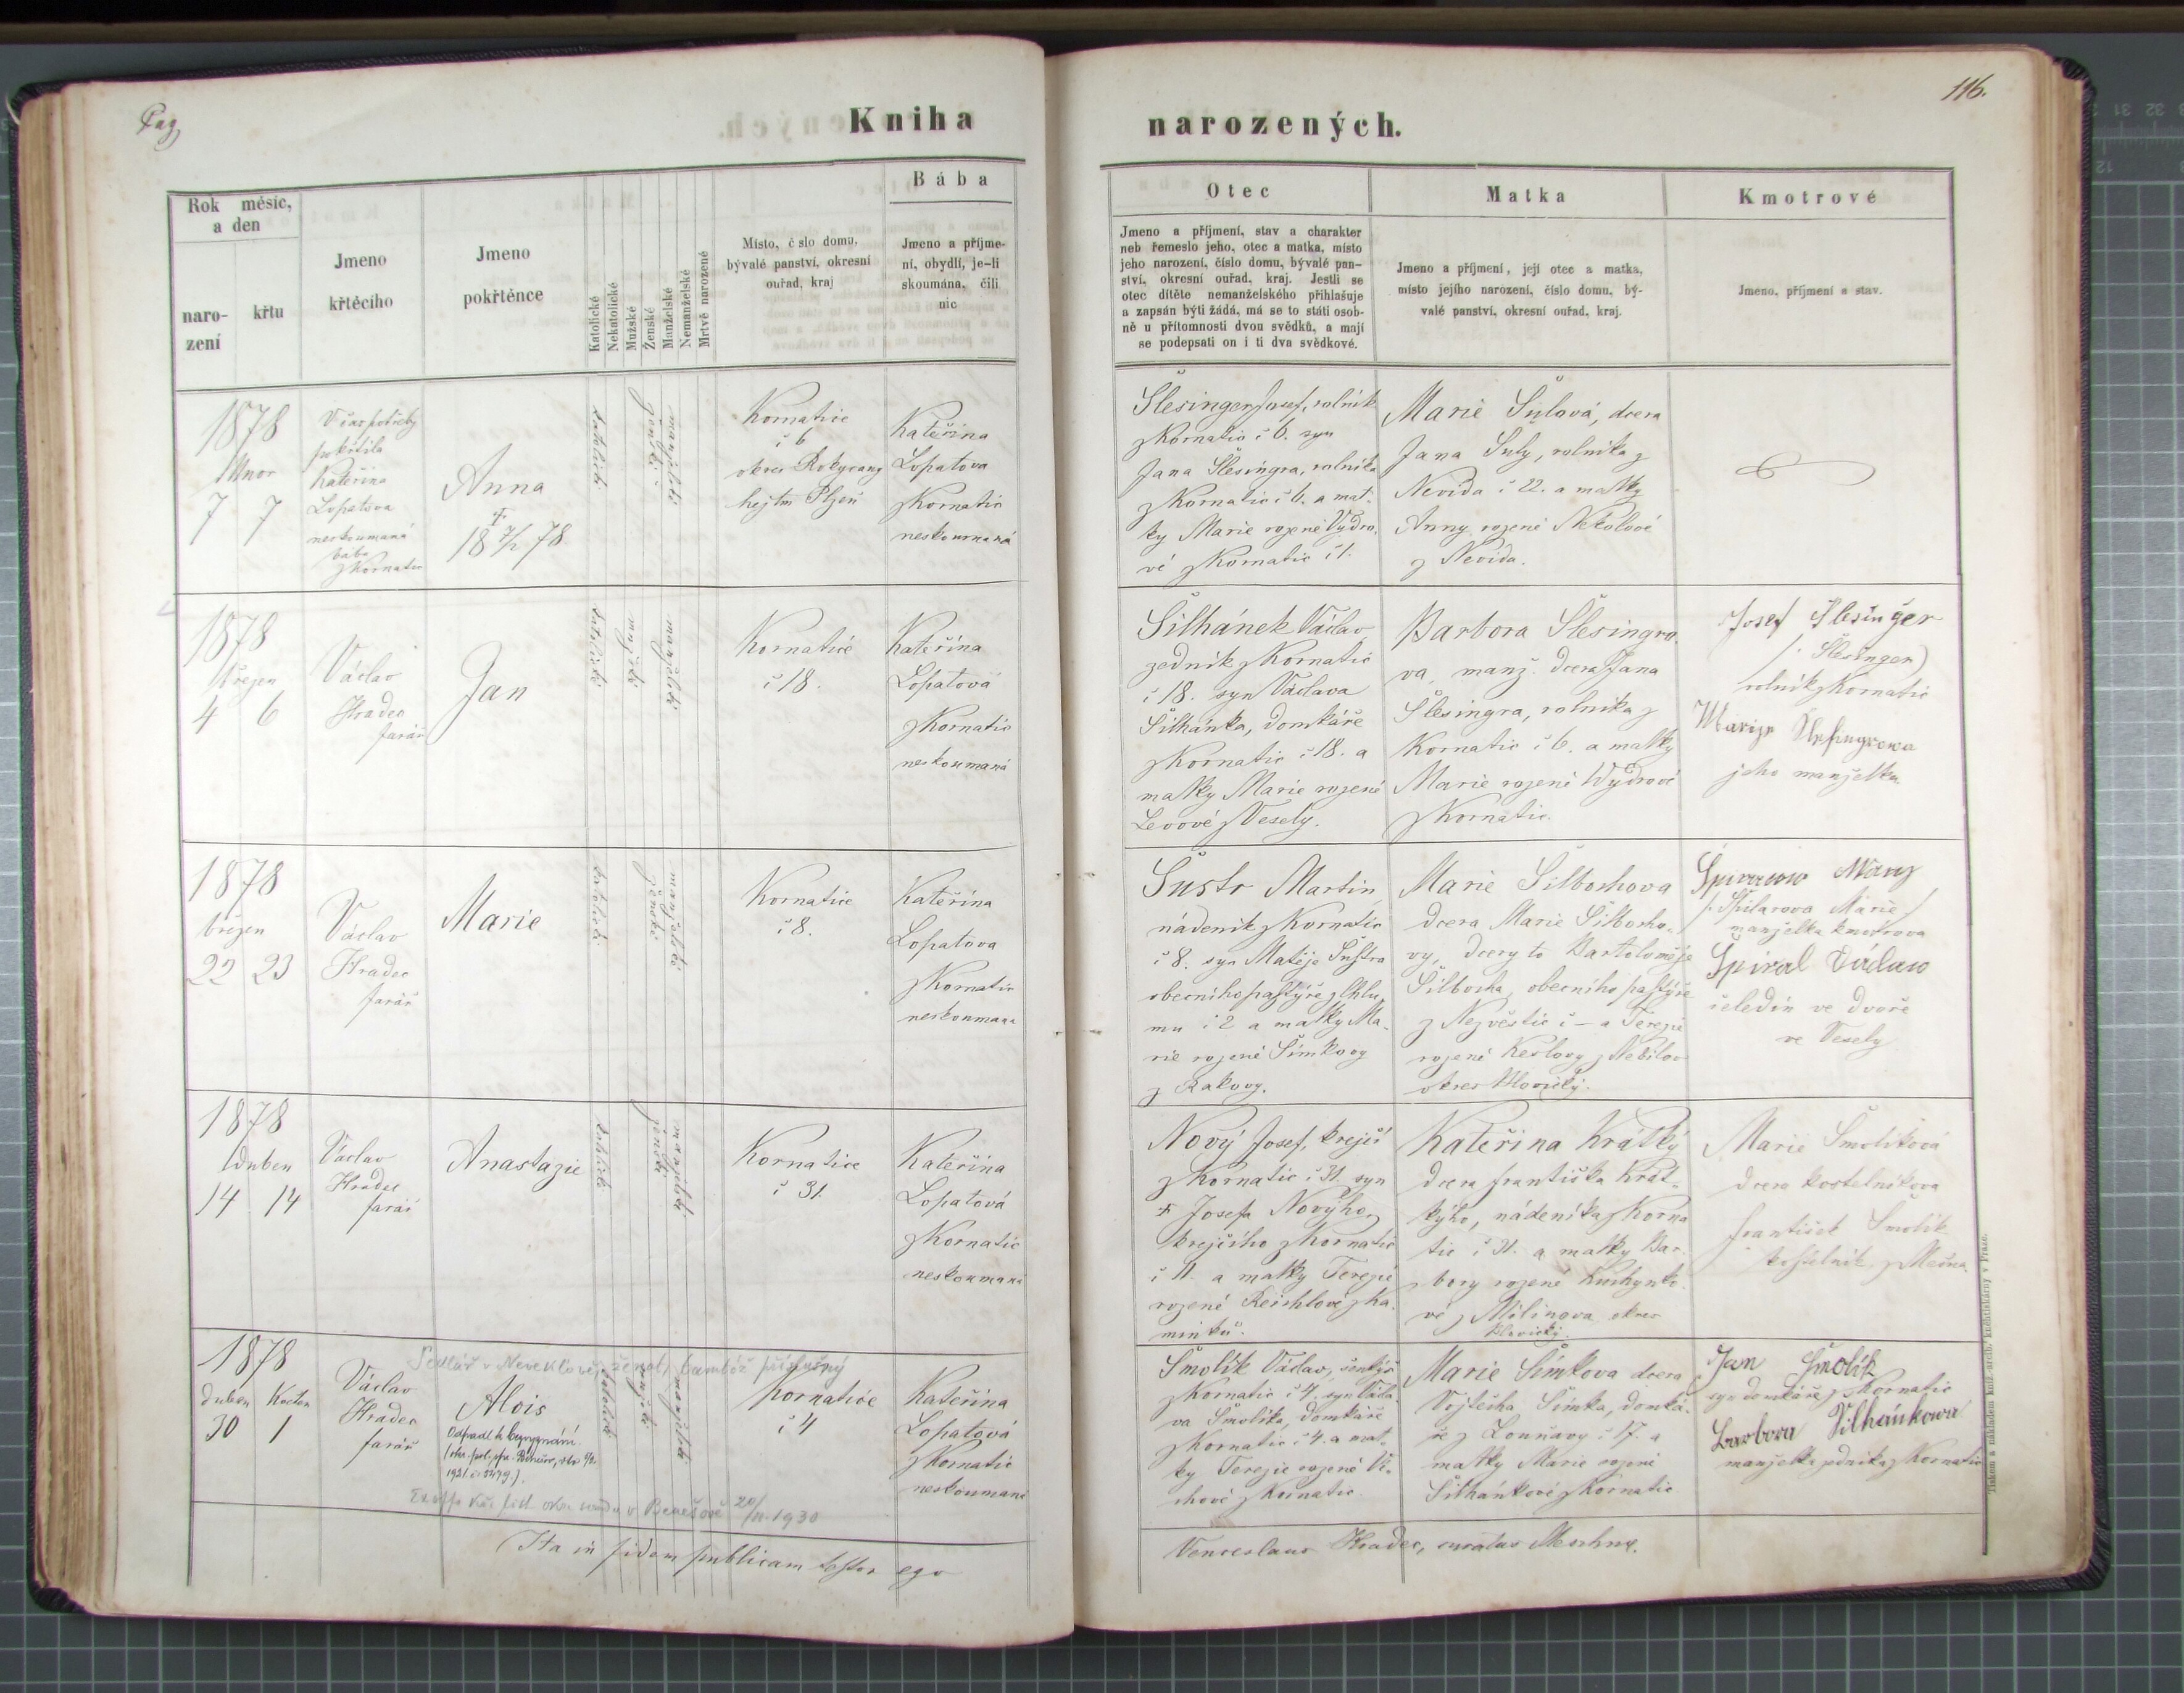 Pag
116.
Kniha
narozených.
Rok měsíc,
a den
naro-
zení
křtu
Jmeno
křtěcího
Jmeno
pokřtěnce
Katolické
Nekatolické
Mužské
Ženské
Manželské
Nemanželské
Mrtvě narozené
Místo, číslo domu,
bývalé panství, okresní
ouřad, kraj
Bába
Jmeno a příjme-
ní, obydlí, je-li
skoumána, čili
nic
Otec
Jmeno a příjmení, stav a charakter
neb řemeslo jeho, otec a matka, místo
jeho narození, číslo domu, bývalé pan-
ství, okresní ouřad, kraj. Jestli se
otec dítěte nemanželského přihlašuje
a zapsán býti žádá, má se to státi osob-
ně u přítomnosti dvou svědků, a mají
se podepsati on i ti dva svědkové.
Matka
Jmeno a příjmení, její otec a matka,
místo jejího narození, číslo domu, bý-
valé panství, okresní ouřad, kraj.
Kmotrové
Jmeno, příjmení a stav.
1878
Unor
7 7
V čas potřeby
pokřtila
Kateřina
Lopatova
neskoumaná
bába
z Kornatic
Anna
†
18 7/2 78
katolické
ženské
manželské
Kornatice
č 6
okres Rokycany
hejtm Plzeň
Kateřina
Lopatova
z Kornatic
neskoumaná
Šlesinger Josef, rolník
z Kornatic č 6. syn
Jana Šlesingra, rolníka
z Kornatic č 6. a mat-
ky Marie rozené Vydro-
vé z Kornatic č 1.
Marie Šulová, dcera
Jana Šuly, rolníka z
Nevida č 22. a matky
Anny rozené Nekolové
z Nevida.
1878
Březen
4 6
Václav
Hradec
farář
Jan
katolické
mužské
manželské
Kornatice
č 18.
Kateřina
Lopatová
z Kornatic
neskoumaná
Šilhánek Václav,
zedník z Kornatic
č 18. syn Václava
Šilhánka, domkáře
z Kornatic č 18. a
matky Marie rozené
Levové z Vesely.
Barbora Šlesingro-
va, manž. dcera Jana
Šlesingra, rolníka z
Kornatic č 6. a matky
Marie rozené Wydrové
z Kornatic.
Josef Šlesinger
/: Šlesinger)
rolník z Kornatic
Marije Šlesingrowa
jeho manželka
1878
březen
22 23
Václav
Hradec
farář
Marie
katolické
ženské
manželské
Kornatice
č 8.
Kateřina
Lopatova
z Kornatic
neskoumana
Šustr Martin,
nádeník z Kornatic
č 8. syn Matěje Šustra
obecního pastýře z Chlu-
mu č 2 a matky Ma-
rie rozené Šimkovy
z Rakovy.
Marie Šilbochova
dcera Marie Šilbocho-
vy, dcery to Bartoloměje
Šilbocha, obecního pastýře
z Nezvěstic č – a Terezie
rozené Keslovy z Nebílov
okres Blovický.
manželka kmotrova
Václaw
čeledín ve dvoře
ve Vesely
1878
duben
14 14
Václav
Hradec
farář
Anastazie
katolické
ženské
manželské
Kornatice
č 31.
Kateřina
Lopatová
z Kornatic
neskoumana
Nový Josef, krejčí
z Kornatic č 31. syn
† Josefa Novýho,
krejčího z Kornatic
č 11. a matky Terezie
rozené Reichlové z Ka-
mínku.
Kateřina Krátký
dcera františka Krát-
kýho, nádeníka z Korna
tic č 31. a matky Bar-
bory rozené Kuchynko-
vé z Milinova okres
Blovický.
Marie Smolíková
dcera kostelníkova
františek Smolík
kostelník z Mešna.
1878
duben Květen
30 1
Václav
Hradec
farář
Alois
Odpadl k bezvyznání.
1921. č. 3479.)
katolické
mužské
manželské
Kornatice
č 4
Kateřina
Lopatová
z Kornatic
neskoumaná
20/II. 1930
Smolík Václav, šenkýř
z Kornatic č 4. syn Václa-
va Smolíka, domkáře
z Kornatic č 4. a mat-
ky Terezie rozené Vl-
chové z Kornatic
Marie Šimkova dcera
Vojtěcha Šimka, domká-
ře z Lounavy č 17. a
matky Marie rozené
Šilhánkové z Kornatic
Jan Smolík
syn domkáře z Kornatic
Barbora Šilhánkowa
manželka zedníka z Kornatic
Ita in fidem publicam testor ego
Venceslaus Hradec, curatus Meschn.
Tiskem a nákladem kníž.-arcib. knihtiskárny v Praze.